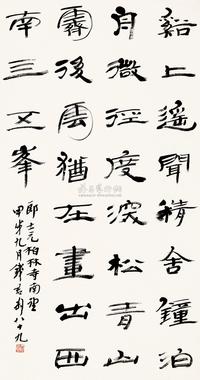 谿上遥聞精舍鐘泊
舟微徑度深松青山
霽後雲猶在畫出西
南三五峯
郎士元柏林寺南望
甲戌九月錢君匋八十九